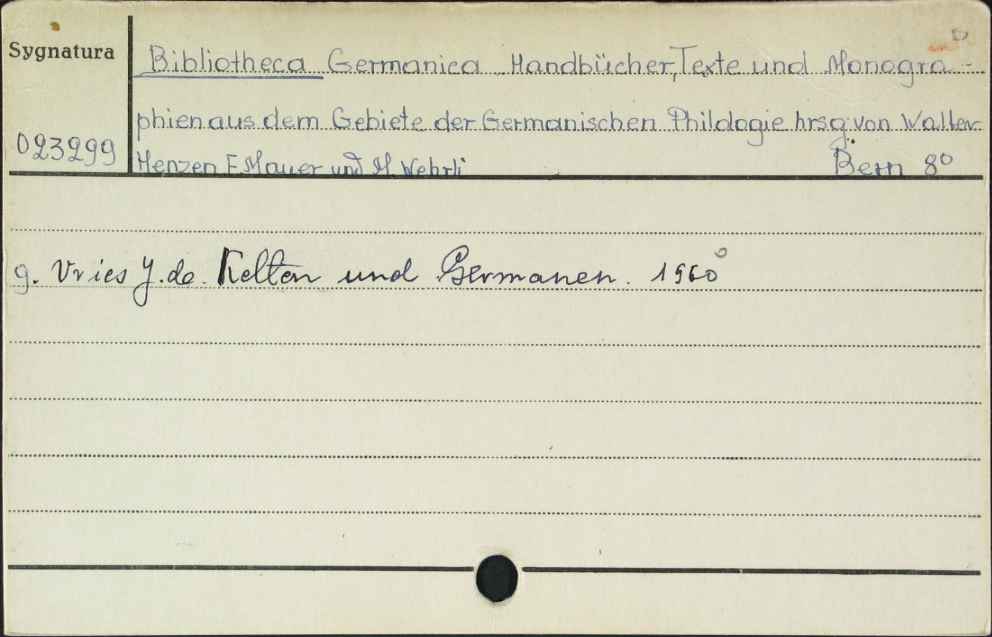 Sygnatura
Bibliotheca Germanica Handbücher, Texte und Monogra-
phien aus dem Gebiete der Germanischen Philologie hrsg. von Walter
023299
Henzen F. Mauer und M. Wehrli Bern 8°
9. Vries J. de. Kelten und Germanen. 1960